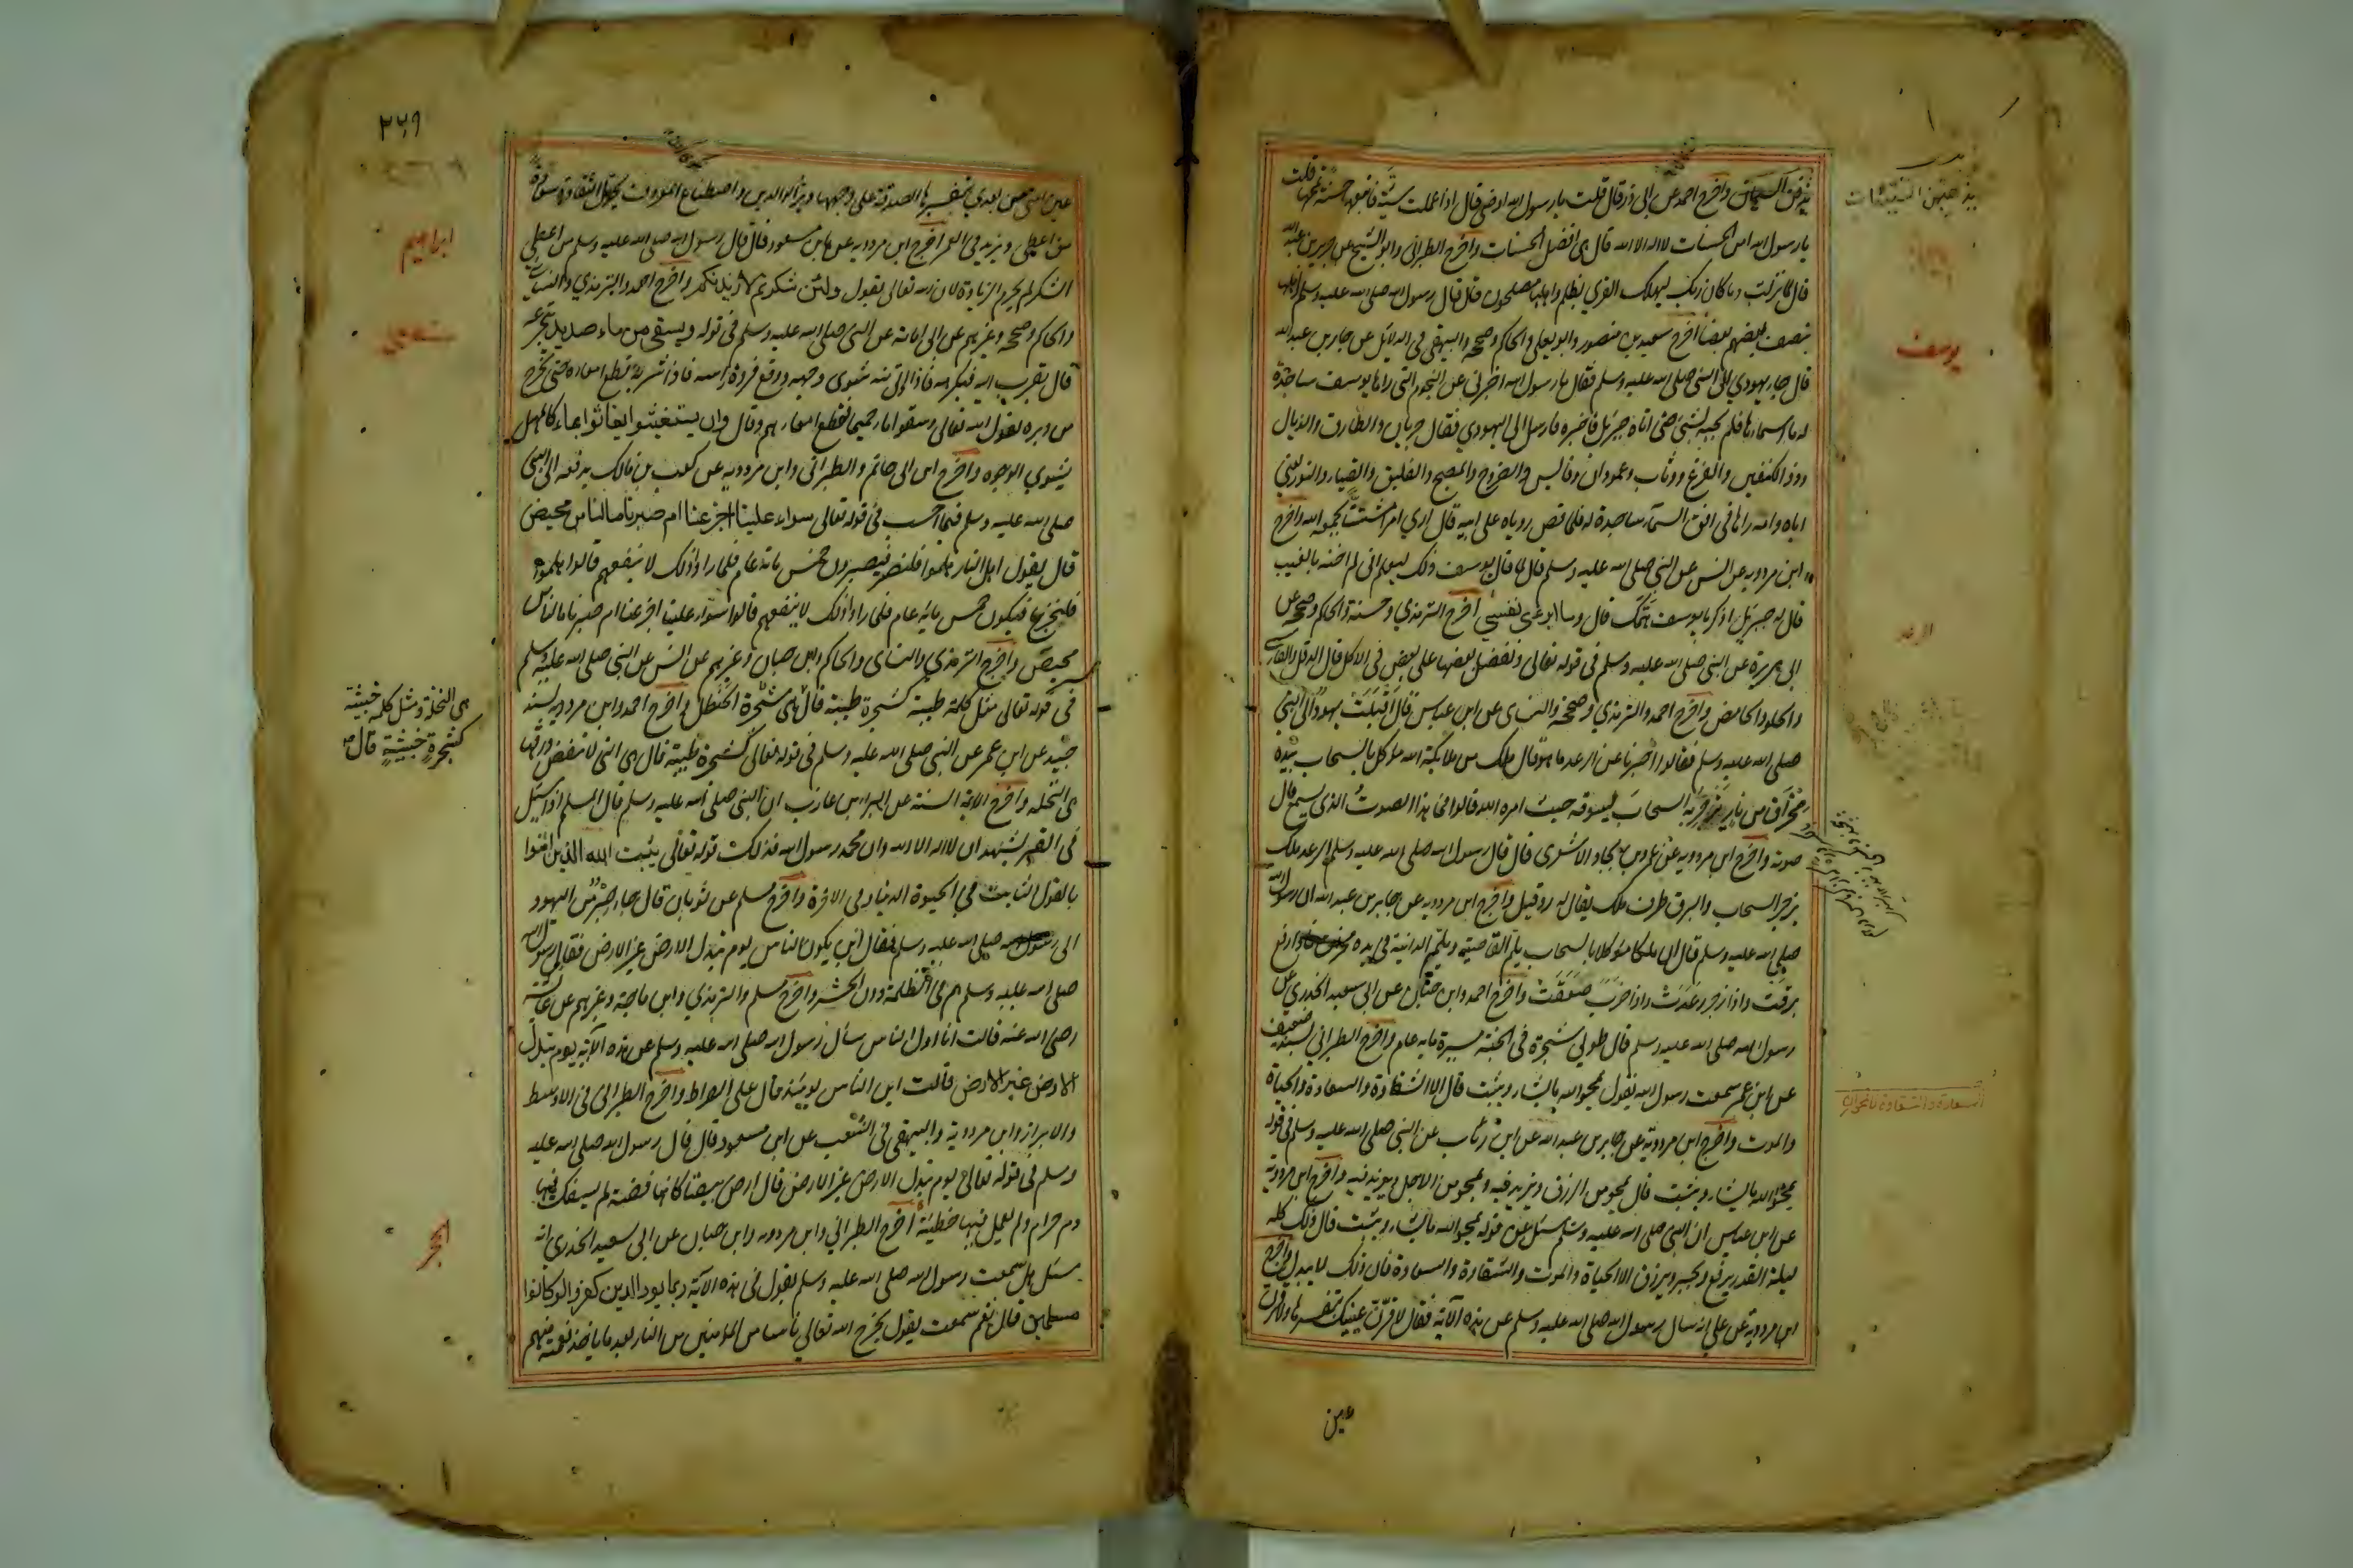 يذهبن السيئات واخرج احمد عن ابى ذر قال قلت يارسول الله اوصنى قال اذا عملت سيئة فاتبعها حسنة تمحها قلت
يارسول الله امن الحسنات لا اله الا الله قال هى افضل الحسنات واخرج الطبرانى وابو الشيخ عن جرير بن عبد الله
قال لما نزلت وما كان ربك ليهلك القرى بظلم واهلها مصلحون قال قال رسول الله صلى الله عليه وسلم واهلها
ينصف بعضهم بعضا اخرج سعيد بن منصور وابو يعلى والحاكم وصححه والبيهقى فى الدلائل عن جابر بن عبد الله
قال جاء يهودي الى النبى صلى الله عليه وسلم فقال يارسول الله اخبرنى عن النجوم التى راها يوسف ساجدة
له ما اسماءها فلم يجبه بشئ حتى اتاه جبرئيل فاخبره فارسل الى اليهودي فقال جريان والطارق والذيال
وذو الكتفين والفرغ ووثاب وعمودان وقابس والضروح والمصبح والفليق والضياء والنور يعنى
اباه وامه راها فى افق السماء ساجدة له فلما قص روياه على ابيه قال ارى امرا متشتتا يجمعه الله واخرج
ابن مردويه عن انس عن النبى صلى الله عليه وسلم قال لما قال يوسف ذلك ليعلم انى لم اخنه بالغيب
قال له جبرئيل اذكر يا يوسف همك قال وما ابرئ نفسي اخرج الترمذي وحسنه والحاكم وصححه عن
ابى هريرة عن النبى صلى الله عليه وسلم فى قوله تعالى ونفضل بعضها على بعض فى الاكل قال الدقل والفارسى
والحلو والحامض واخرج احمد والترمذي وصححه والنسائ عن ابن عباس قال اقبلت يهود الى النبى
صلى الله عليه وسلم فقالوا اخبرنا عن الرعد ما هو قال ملك من ملائكة الله موكل بالسحاب بيده
مخراق من نار يزجر به السحاب يسوقه حيث امره الله قالوا فما هذا الصوت الذى يسمع قال
صوته واخرج ابن مردويه عن عمرو بن بجاد الاشعرى قال قال رسول الله صلى الله عليه وسلم الرعد ملك
يزجر السحاب والبرق طرف ملك يقال له روفيل واخرج ابن مردويه عن جابر بن عبد الله ان رسول الله
صلى الله عليه وسلم قال ان ملكا موكلا بالسحاب يلم القاصية ويلحم الدانية فى يده مخراق فاذا رفع
برقت واذا زجر رعدت واذا ضرب صعقت واخرج احمد وابن حبان عن ابى سعيد الخدرى عن
رسول الله صلى الله عليه وسلم قال طوبى شجرة فى الجنة مسيرة مايه عام واخرج الطبرانى بسند ضعيف
عن ابن عمر سمعت رسول الله يقول يمحو الله ما يشاء ويثبت قال الا الشقاوة والسعادة والحياة
والموت واخرج ابن مردويه عن جابر بن عبد الله عن ابن رئاب عن النبى صلى الله عليه وسلم فى قوله
يمحو الله ما يشاء ويثبت قال يمحو من الرزق ويزيد فيه ويمحو من الاجل ويزيد فيه واخرج ابن مردويه
عن ابن عباس ان النبى صلى الله عليه وسلم سئل عن قوله يمحو الله ما يشاء ويثبت قال ذلك كله
ليلة القدر يرفع ويجبر ويرزق الا الحياة والموت والشقاوة والسعادة فان ذلك لا يبدل واخرج
ابن مردويه عن على انه سال رسول الله صلى الله عليه وسلم عن هذه الآية فقال لاقرن عينيك بتفسيرها ولاقرن
يذهبن السيئات
يوسف
الرعد
السعادة والشقاوة
عين
٢٦٩
عين امتى من بعدي بتفسيرها الصدقة على وجهها وبر الوالدين واصطناع المعروف يحول الشقاوة سعادة
ويزيد فى العمر اخرج ابن مردويه عن ابن مسعود قال قال رسول الله صلى الله عليه وسلم من اعطى
الشكر لم يحرم الزيادة لان الله تعالى يقول ولئن شكرتم لازيدنكم واخرج احمد والترمذي والنسائ
والحاكم وصححه وغيرهم عن ابى امامة عن النبى صلى الله عليه وسلم فى قوله ويسقى من ماء صديد يتجرعه
قال يقرب اليه فيكرهه فاذا ادنى منه شوى وجهه ووقع فروة راسه فاذا شربه قطع امعاءه حتى يخرج
من دبره يقول الله تعالى وسقوا ماء حميما فقطع امعاءهم وقال وان يستغيثوا يغاثوا بماء كالمهل
يشوي الوجوه واخرج ابن ابى حاتم والطبرانى وابن مردويه عن كعب بن مالك يرفعه الى النبى
صلى الله عليه وسلم فيما احسب فى قوله تعالى سواء علينا اجزعنا ام صبرنا مالنا من محيص
قال يقول اهل النار هلموا فلنصبر فيصبرون خمس ماية عام فلما راوا ذلك لا ينفعهم قالوا هلموا
فلنجزع فيبكون خمس مايه عام فلما راوا ذلك لا ينفعهم قالوا سواء علينا اجزعنا ام صبرنا مالنا من
محيص واخرج الترمذي والنسائ والحاكم وابن حبان وغيرهم عن انس عن النبى صلى الله عليه وسلم
فى قوله تعالى مثل كلمة طيبة كشجرة طيبة قال هى شجرة الحنظل واخرج احمد وابن مردويه بسند
جيد عن ابن عمر عن النبى صلى الله عليه وسلم فى قوله تعالى كشجرة طيبة قال هى التى لا تنفض ورقها
هى النخله واخرج الايمة الستة عن البراء بن عازب ان النبى صلى الله عليه وسلم قال المسلم اذا سئل
فى القبر يشهد ان لا اله الا الله وان محمد رسول الله فذلك قوله تعالى يثبت الله الذين امنوا
بالقول الثابت فى الحيوة الدنيا وفى الاخرة واخرج مسلم عن ثوبان قال جاء حبر من اليهود
الى رسول الله صلى الله عليه وسلم فقال اين يكون الناس يوم تبدل الارض غير الارض فقال رسول الله
صلى الله عليه وسلم هم فى الظلمة دون الجسر واخرج مسلم والترمذي وابن ماجة وغيرهم عن عايشة
رضى الله عنه قالت انا اول الناس سأل رسول الله صلى الله عليه وسلم عن هذه الآية يوم تبدل
الارض غير الارض قالت اين الناس يومئذ قال على الصراط واخرج الطبرانى فى الاوسط
والابزاز وابن مردويه والبيهقى فى الشعب عن ابن مسعود قال قال رسول الله صلى الله عليه
وسلم فى قوله تعالى يوم تبدل الارض غير الارض قال ارض بيضا كانها فضة لم يسفك فيها
دم حرام ولم يعمل فيها خطيئة اخرج الطبرانى وابن مردويه وابن حبان عن ابى سعيد الخدرى انه
سئل هل سمعت رسول الله صلى الله عليه وسلم يقول فى هذه الآية ربما يود الذين كفروا لو كانوا
مسلمين قال نعم سمعت يقول يخرج الله تعالى ناسا من المؤمنين من النار بعد ما ياخذ نقمته منهم
ابراهيم
هى النخلة ومثل كلمة خبيثة
كشجرة خبيثة قال
الحجر